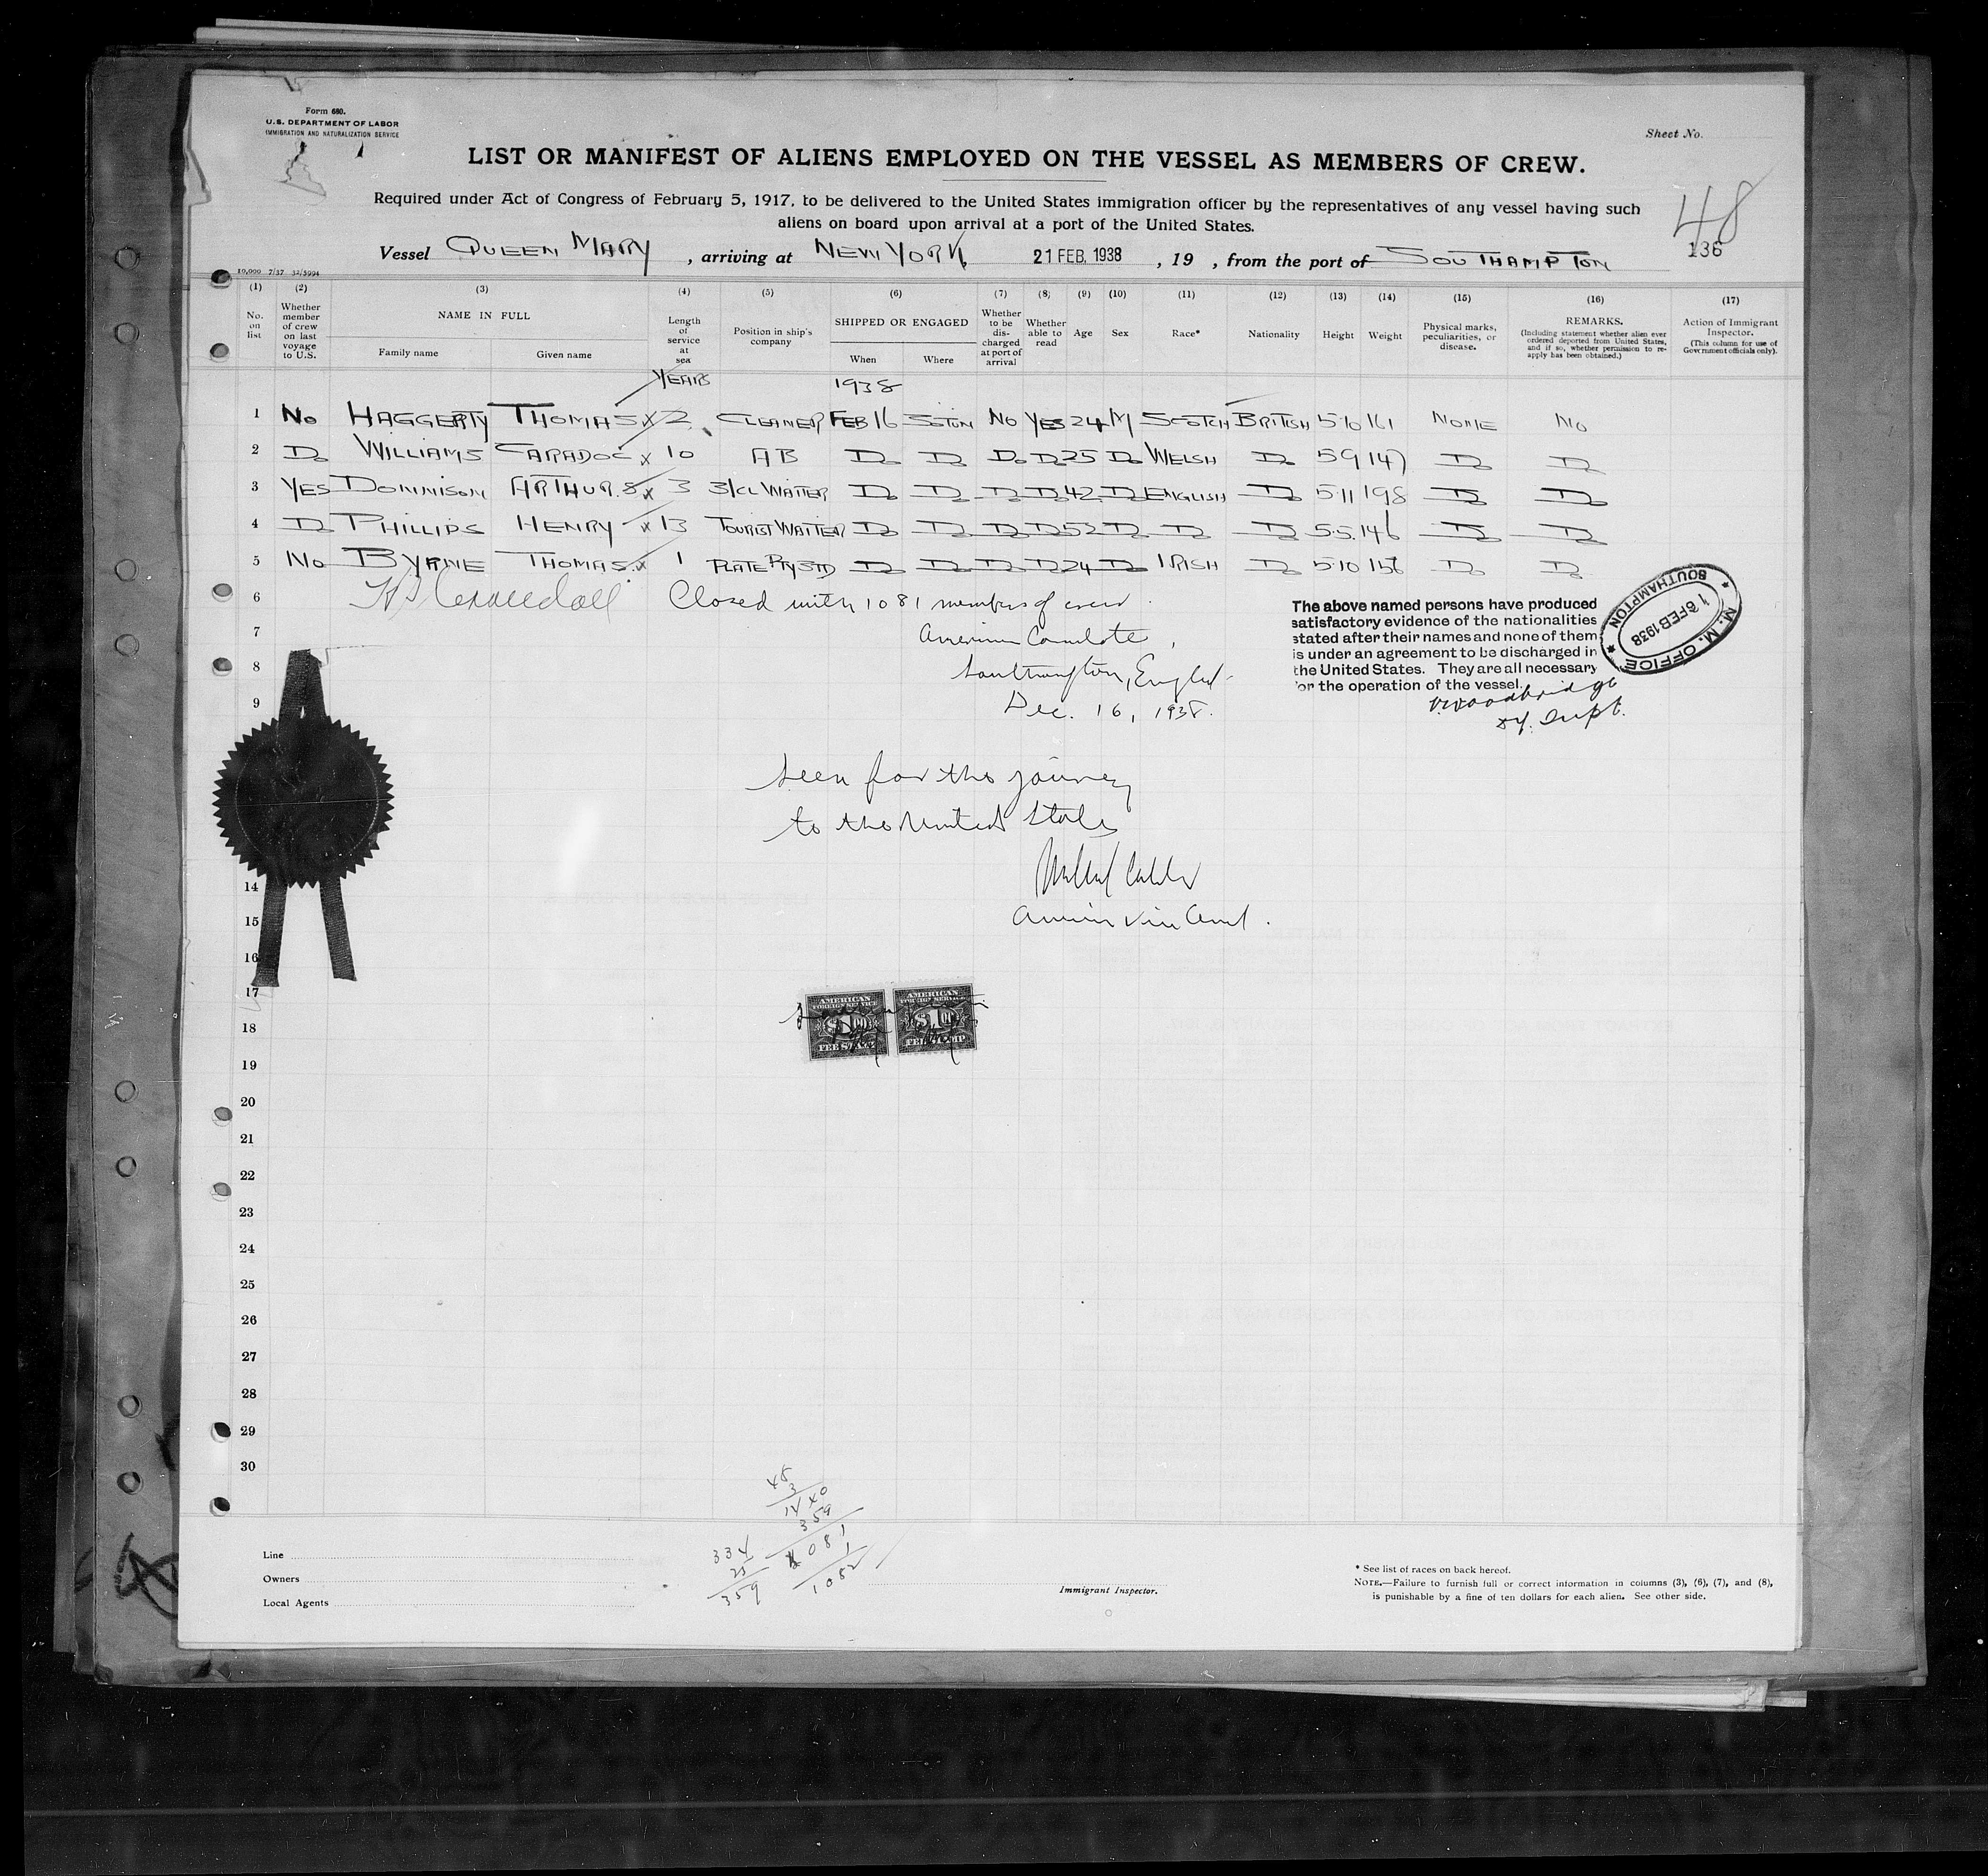 Form 680.
U.S. DEPARTMENT OF LABOR
IMMIGRATION AND NATURALIZATION SERVICE
Sheet No.
LIST OR MANIFEST OF ALIENS EMPLOYED ON THE VESSEL AS MEMBERS OF CREW.
Required under Act of Congress of February 5, 1917, to be delivered to the United States immigration officer by the representatives of any vessel having such
aliens on board upon arrival at a port of the United States.
48
136
Vessel QUEEN MARY, arriving at NEW YORK 21 FEB. 1938, 19 , from the port of SOUTHAMPTON
10,000 7/37 32/3994
(1) (2) (3) (4) (5) (6) (7) (8) (9) (10) (11) (12) (13) (14) (15) (16) (17)
No. on list
Whether member of crew on last voyage to U.S.
NAME IN FULL
Family name Given name
Length of service at sea
Position in ship's company
SHIPPED OR ENGAGED
When Where
Whether to be discharged at port of arrival
Whether able to read
Age
Sex
Race*
Nationality
Height
Weight
Physical marks, peculiarities, or disease.
REMARKS.
(Including statement whether alien ever ordered deported from United States, and if so, whether permission to re-apply has been obtained.)
Action of Immigrant Inspector.
(This column for use of Government officials only).
YEARS 1938
1 No HAGGERTY THOMAS x 2 CLEANER FEB 16 SOTON No YES 24 M SCOTCH BRITISH 5·10 161 NONE No
2 Do WILLIAMS CARADOC x 10 AB Do Do Do Do 25 Do WELSH Do 5 9 147 Do Do
3 YES DONNISON ARTHUR. S x 3 3/CL WAITER Do Do Do Do 42 Do ENGLISH Do 5·11 198 Do Do
4 Do PHILLIPS HENRY x 13 TOURIST WAITER Do Do Do Do 52 Do Do Do 5·5 146 Do Do
5 No BYRNE THOMAS. x 1 PLATE PTYSTD Do Do Do Do 24 Do IRISH Do 5·10 156 Do Do
6 Closed with 1081 members of crew.
7 American Consulate,
8 Southampton, England
9 Dec. 16, 1938.
The above named persons have produced
satisfactory evidence of the nationalities
stated after their names and none of them
is under an agreement to be discharged in
the United States. They are all necessary
for the operation of the vessel.
M. M. OFFICE
16 FEB 1938
SOUTHAMPTON
V. Woodbridge
Dy. Supt.
Seen for the journey
to the United States
14
American Vice Consul.
15
16
17
AMERICAN FOREIGN SERVICE $1.00 FEE STAMP
AMERICAN FOREIGN SERVICE $1.00 FEE STAMP
18
19
20
21
22
23
24
25
26
27
28
29
30
48
3
1440
359
1081
1
1082
334
25
359
Line
Owners
Local Agents
Immigrant Inspector.
* See list of races on back hereof.
NOTE.—Failure to furnish full or correct information in columns (3), (6), (7), and (8),
is punishable by a fine of ten dollars for each alien. See other side.